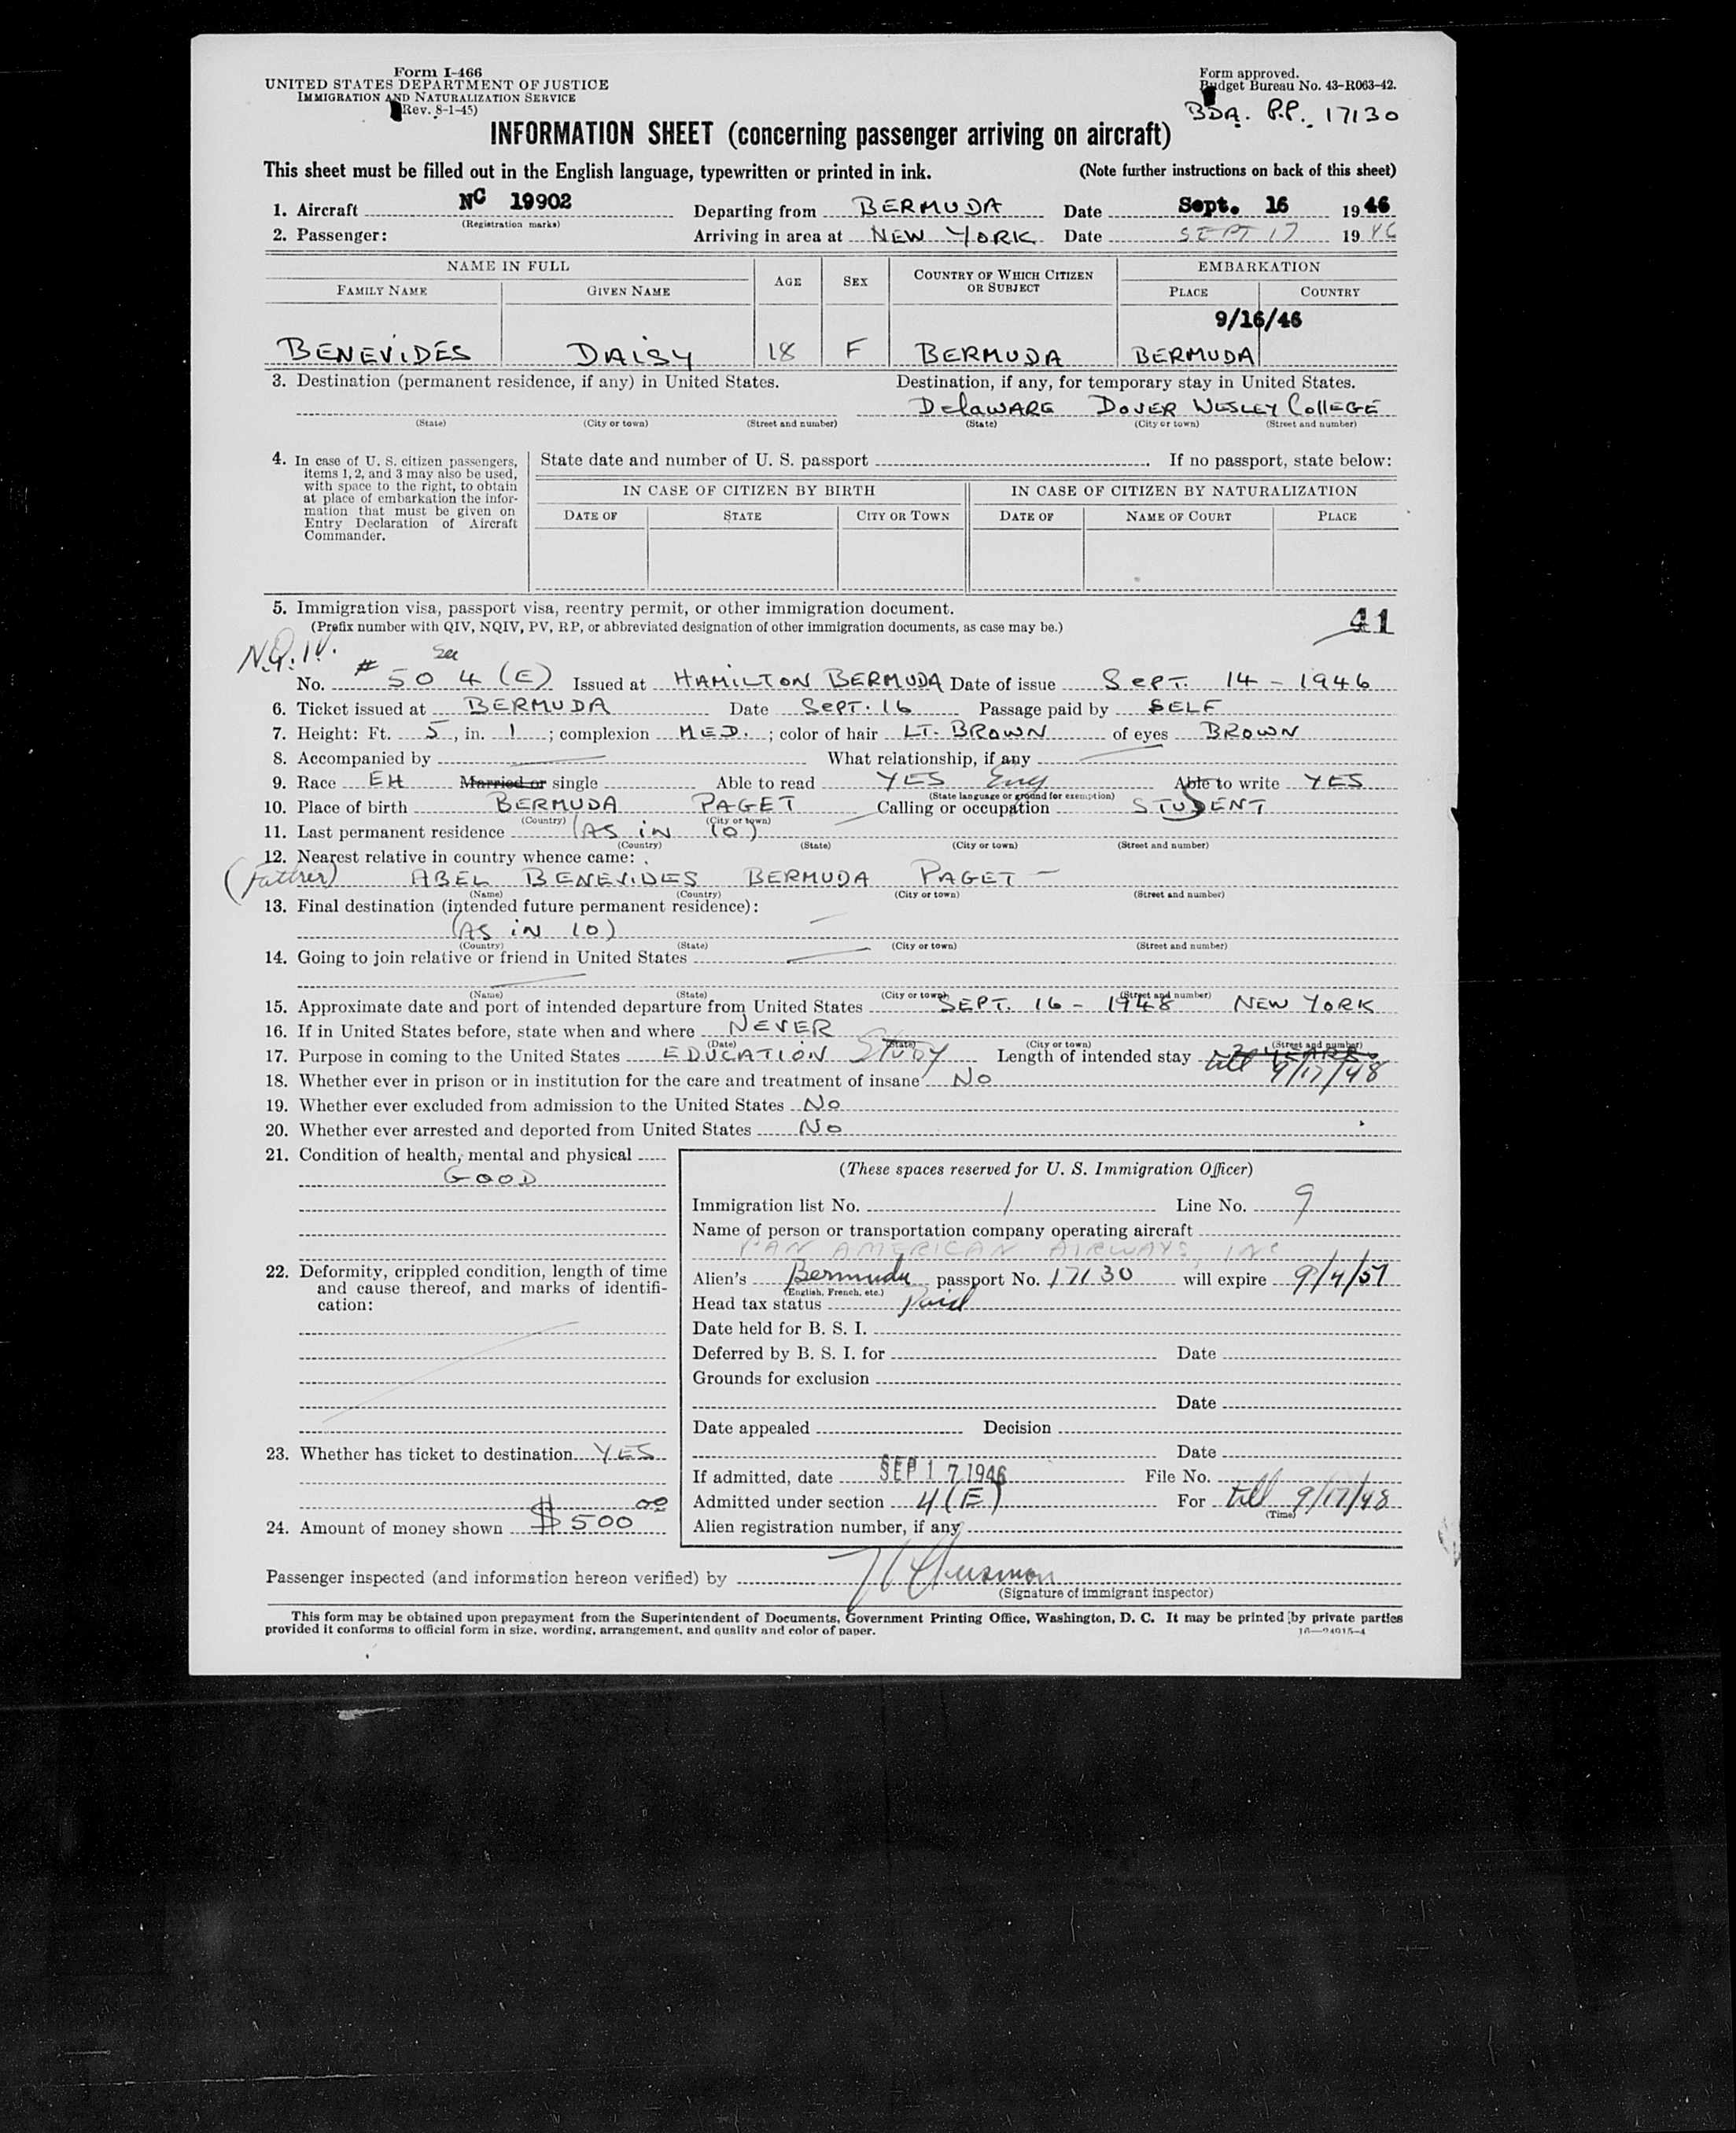 Form I-466
UNITED STATES DEPARTMENT OF JUSTICE
IMMIGRATION AND NATURALIZATION SERVICE
(Rev. 8-1-45)
Form approved.
Budget Bureau No. 43-R063-42.
BDA. P.P. 17130
INFORMATION SHEET (concerning passenger arriving on aircraft)
This sheet must be filled out in the English language, typewritten or printed in ink. (Note further instructions on back of this sheet)
1. Aircraft NC 19902 Departing from BERMUDA Date Sept. 16 1946
(Registration marks)
2. Passenger: Arriving in area at NEW YORK Date SEPT 17 1946
NAME IN FULL AGE SEX COUNTRY OF WHICH CITIZEN OR SUBJECT EMBARKATION
FAMILY NAME GIVEN NAME PLACE COUNTRY
9/16/46
BENEVIDES DAISY 18 F BERMUDA BERMUDA
3. Destination (permanent residence, if any) in United States. Destination, if any, for temporary stay in United States.
DELAWARE DOVER WESLEY COLLEGE
(State) (City or town) (Street and number) (State) (City or town) (Street and number)
4. In case of U. S. citizen passengers, items 1, 2, and 3 may also be used, with space to the right, to obtain at place of embarkation the information that must be given on Entry Declaration of Aircraft Commander.
State date and number of U. S. passport . If no passport, state below:
IN CASE OF CITIZEN BY BIRTH IN CASE OF CITIZEN BY NATURALIZATION
DATE OF STATE CITY OR TOWN DATE OF NAME OF COURT PLACE
5. Immigration visa, passport visa, reentry permit, or other immigration document.
(Prefix number with QIV, NQIV, PV, RP, or abbreviated designation of other immigration documents, as case may be.)
41
N.Q.I.V.
Sec
No. # 50 4 (E) Issued at HAMILTON BERMUDA Date of issue SEPT. 14 - 1946
6. Ticket issued at BERMUDA Date SEPT. 16 Passage paid by SELF
7. Height: Ft. 5, in. 1; complexion MED.; color of hair LT. BROWN of eyes BROWN
8. Accompanied by What relationship, if any
9. Race EH Married or single Able to read YES Eng Able to write YES
(State language or ground for exemption)
10. Place of birth BERMUDA PAGET Calling or occupation STUDENT
(Country) (City or town)
11. Last permanent residence (AS IN 10)
(Country) (State) (City or town) (Street and number)
12. Nearest relative in country whence came:
(Father) ABEL BENEVIDES BERMUDA PAGET -
(Name) (Country) (City or town) (Street and number)
13. Final destination (intended future permanent residence):
(AS IN 10)
(Country) (State) (City or town) (Street and number)
14. Going to join relative or friend in United States
(Name) (State) (City or town) (Street and number)
15. Approximate date and port of intended departure from United States SEPT. 16 - 1948 NEW YORK
16. If in United States before, state when and where NEVER
(Date) (State) (City or town) (Street and number)
17. Purpose in coming to the United States EDUCATION STUDY Length of intended stay 2 YEARS till 9/17/48
18. Whether ever in prison or in institution for the care and treatment of insane NO
19. Whether ever excluded from admission to the United States NO
20. Whether ever arrested and deported from United States NO
21. Condition of health, mental and physical
GOOD
22. Deformity, crippled condition, length of time and cause thereof, and marks of identification:
23. Whether has ticket to destination YES
24. Amount of money shown $500 00
(These spaces reserved for U. S. Immigration Officer)
Immigration list No. 1 Line No. 9
Name of person or transportation company operating aircraft
PAN AMERICAN AIRWAYS, INC
Alien's Bermuda passport No. 17130 will expire 9/4/51
(English, French, etc.)
Head tax status Paid
Date held for B. S. I.
Deferred by B. S. I. for Date
Grounds for exclusion
Date
Date appealed Decision
Date
If admitted, date SEP 17 1946 File No.
Admitted under section 4(E) For till 9/17/48
(Time)
Alien registration number, if any
Passenger inspected (and information hereon verified) by
(Signature of immigrant inspector)
This form may be obtained upon prepayment from the Superintendent of Documents, Government Printing Office, Washington, D. C. It may be printed by private parties
provided it conforms to official form in size, wording, arrangement, and quality and color of paper. 16—24915-4